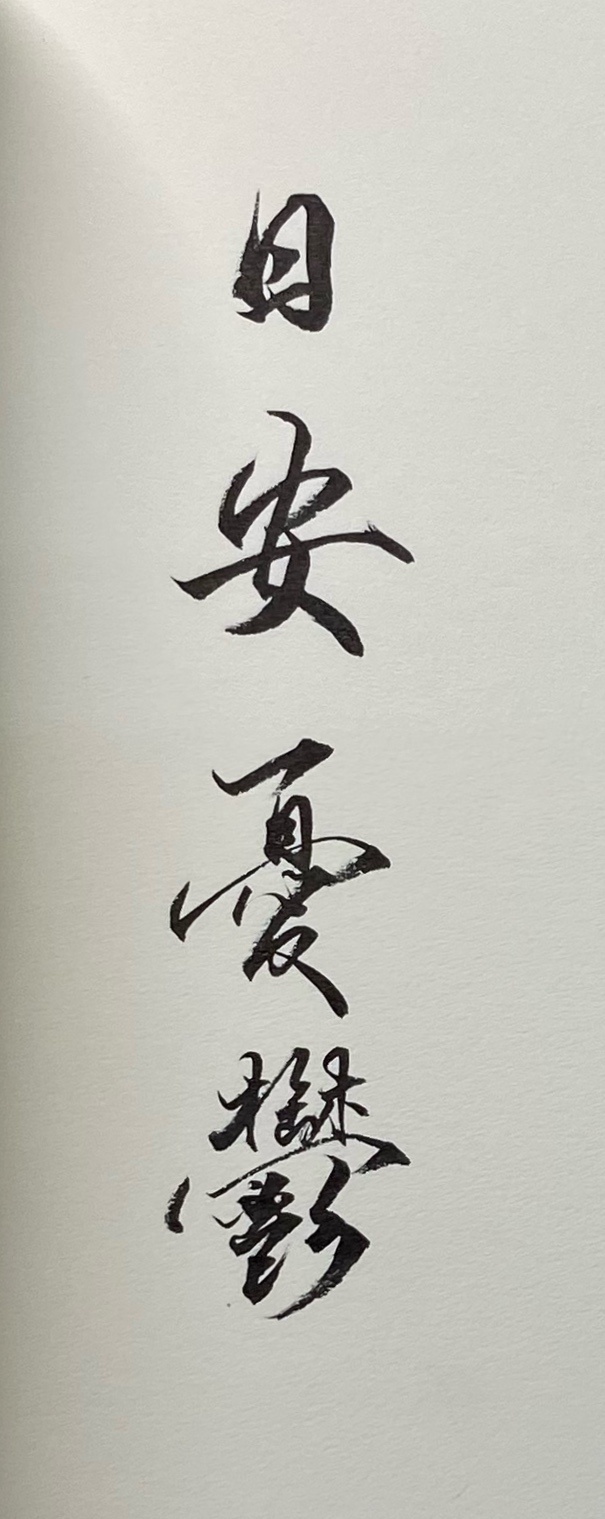 日安憂鬱